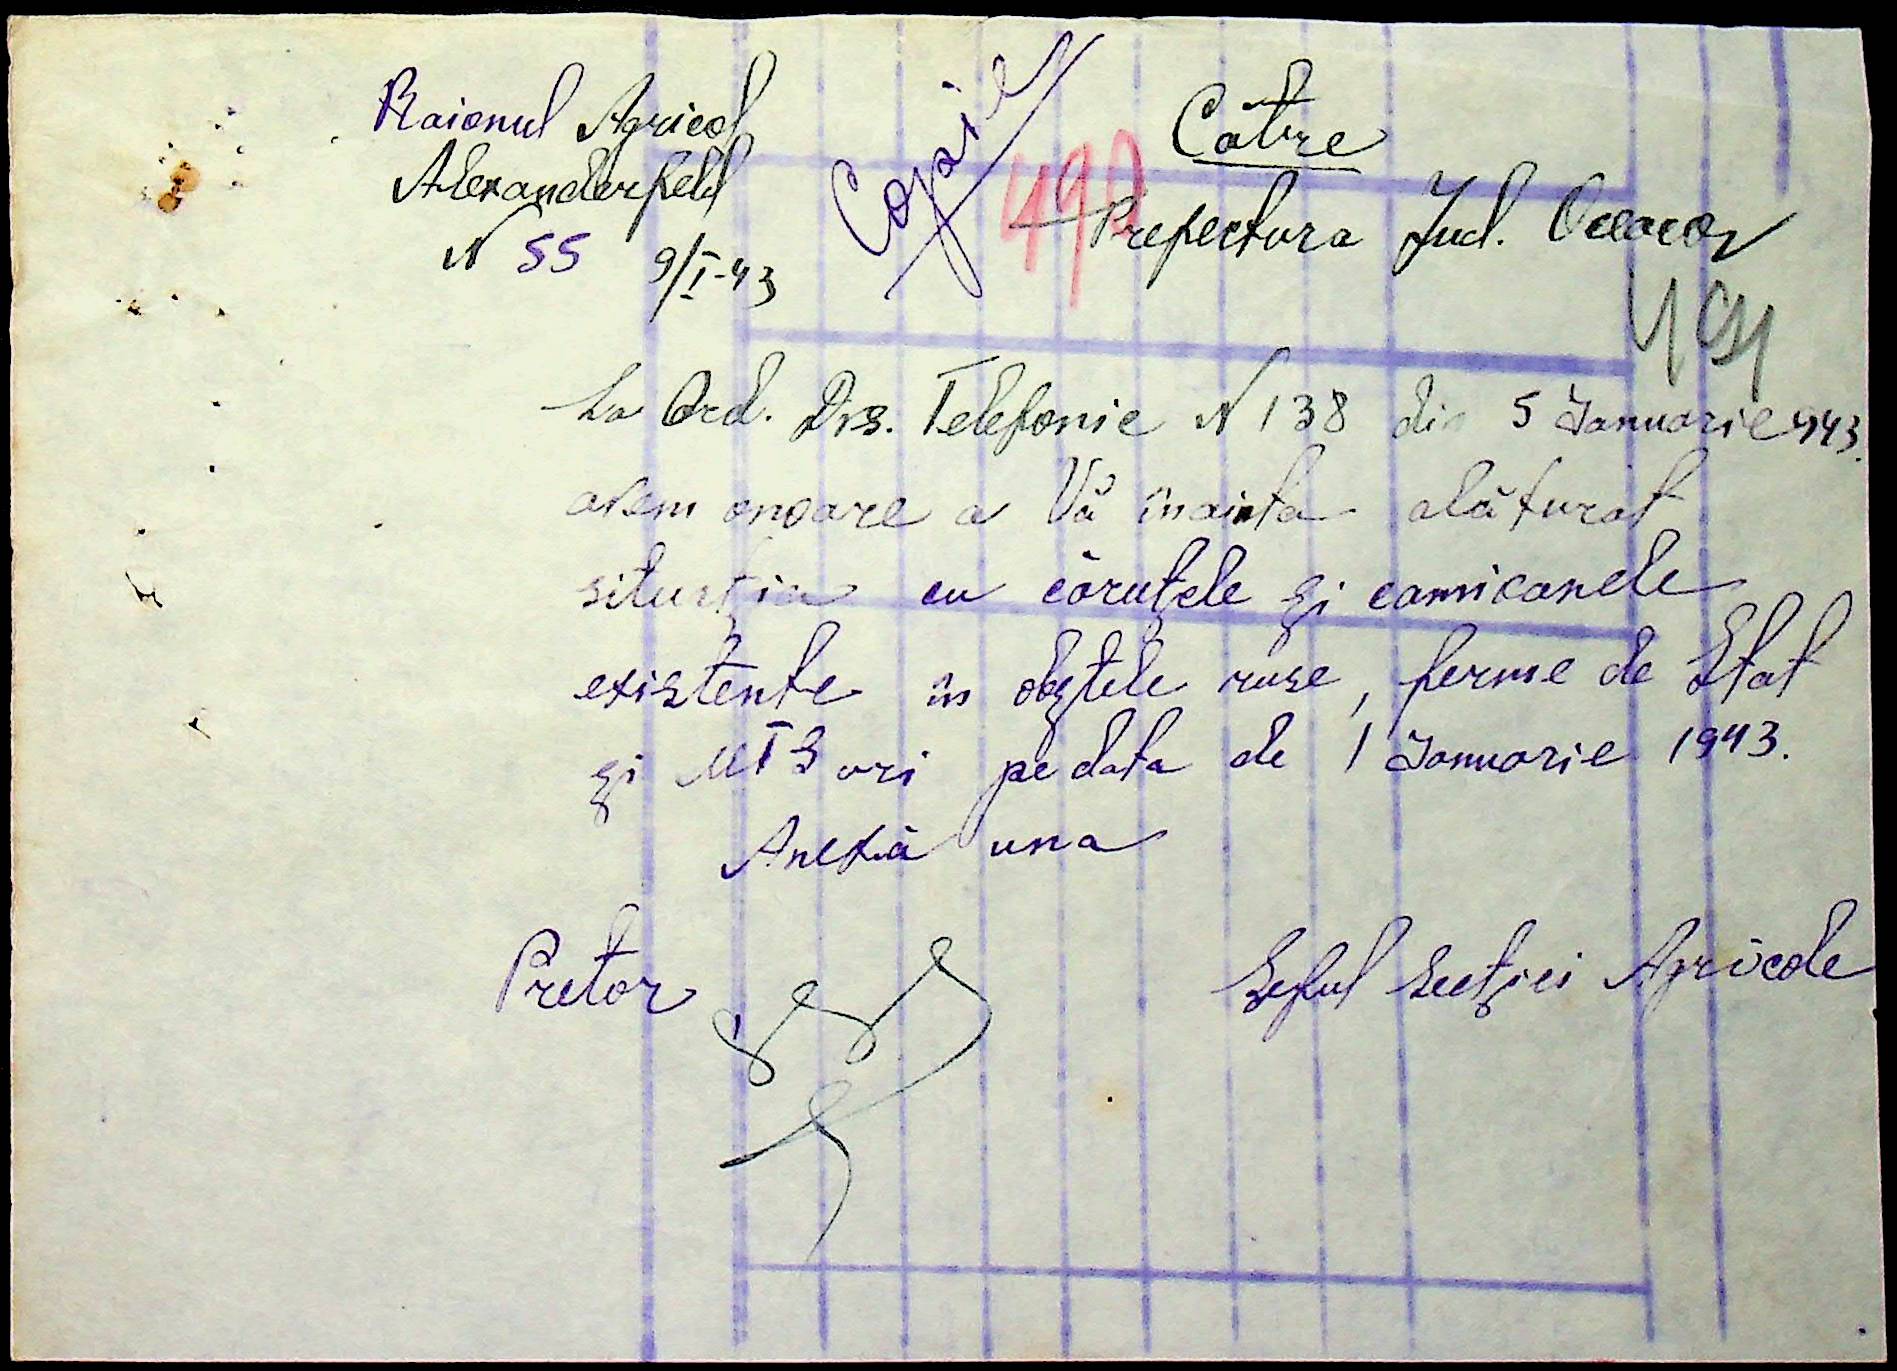 Raionul Agricol
Alexanderfeld
N 55 9/I-43
Copie
490
Către
Prefectura Jud. Oceacov
La Ord. Dvs. Telefonic N 138 din 5 Ianuarie 943.
avem onoare a Vă înainta alăturat
situația cu căruțele și camioanele
existente în obștele ruse, ferme de Stat
și MTS uri pe data de 1 Ianuarie 1943.
Anexă una
Pretor
Șeful Secției Agricole